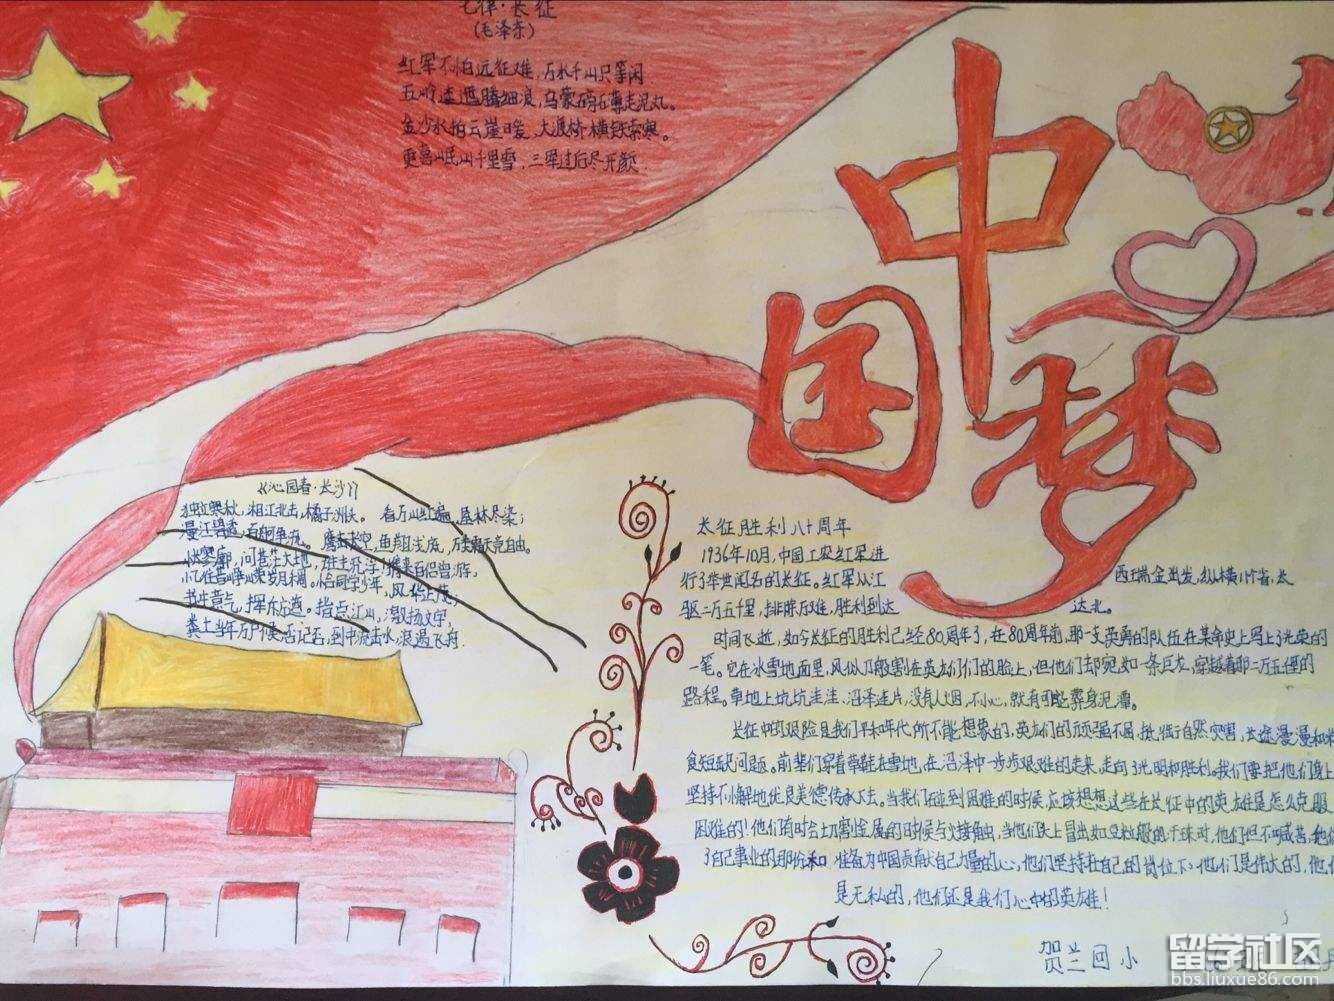 七律·长征
(毛泽东)
红军不怕远征难,万水千山只等闲
五岭逶迤腾细浪,乌蒙磅礴走泥丸。
金沙水拍云崖暖,大渡桥横铁索寒。
更喜岷山千里雪,三军过后尽开颜.
中
国
梦
《沁园春·长沙》
独立寒秋,湘江北去,橘子洲头。看万山红遍,层林尽染;
漫江碧透,百舸争流。鹰击长空,鱼翔浅底,万类霜天竞自由。
怅寥廓,问苍茫大地,谁主沉浮?携来百侣曾游,
忆往昔峥嵘岁月稠。恰同学少年,风华
书生意气,挥斥方遒。指点江山,激扬文字,
粪土当年万户侯。记否,到中流击水,浪遏飞舟
长征胜利八十周年
1936年10月,中国工农红军进
行了举世闻名的长征。红军从江 西瑞金出发,纵横11个省,太
驱二万五千里,排除万难,胜利到达 达北。
时间飞逝,如今长征的胜利已经80周年了,在80周年前,那一支英勇的队伍在革命史上写上了光荣的
一笔。它在冰雪地面里,风似刀般割在英雄们们的脸上,但他们却宛如一条巨龙,穿越着那二万五俚的
路程。草地上坑坑洼洼,沼泽连片,没有人烟,不小心,就有可能葬身泥潭。
长征中的艰险是我们平和年代所不能想象的,英雄们的顽强不屈,抵御自然灾害,长途漫漫和粮
食短缺问题。前辈们穿着草鞋在雪地,在沼泽中一步步艰难的走来,走向了光明和胜利。我们要把他们身上
坚持不懈地优良美德传承下去。当我们在碰到困难的时候,应该想想这些在长征中的英雄是怎么克服
困难的!他们有时会切割金属的时候与火接触,当他们头上冒出如豆粒般的汗珠时,他们但不喊苦,
了自己事业的那份和 准备为中国贡献自己力量的心,他们坚持在自己的岗位下,他们是伟大的,他们
是无私的,他们还是我们心中的英雄!
贺兰回小
留学社区
bbs.liuxue86.com